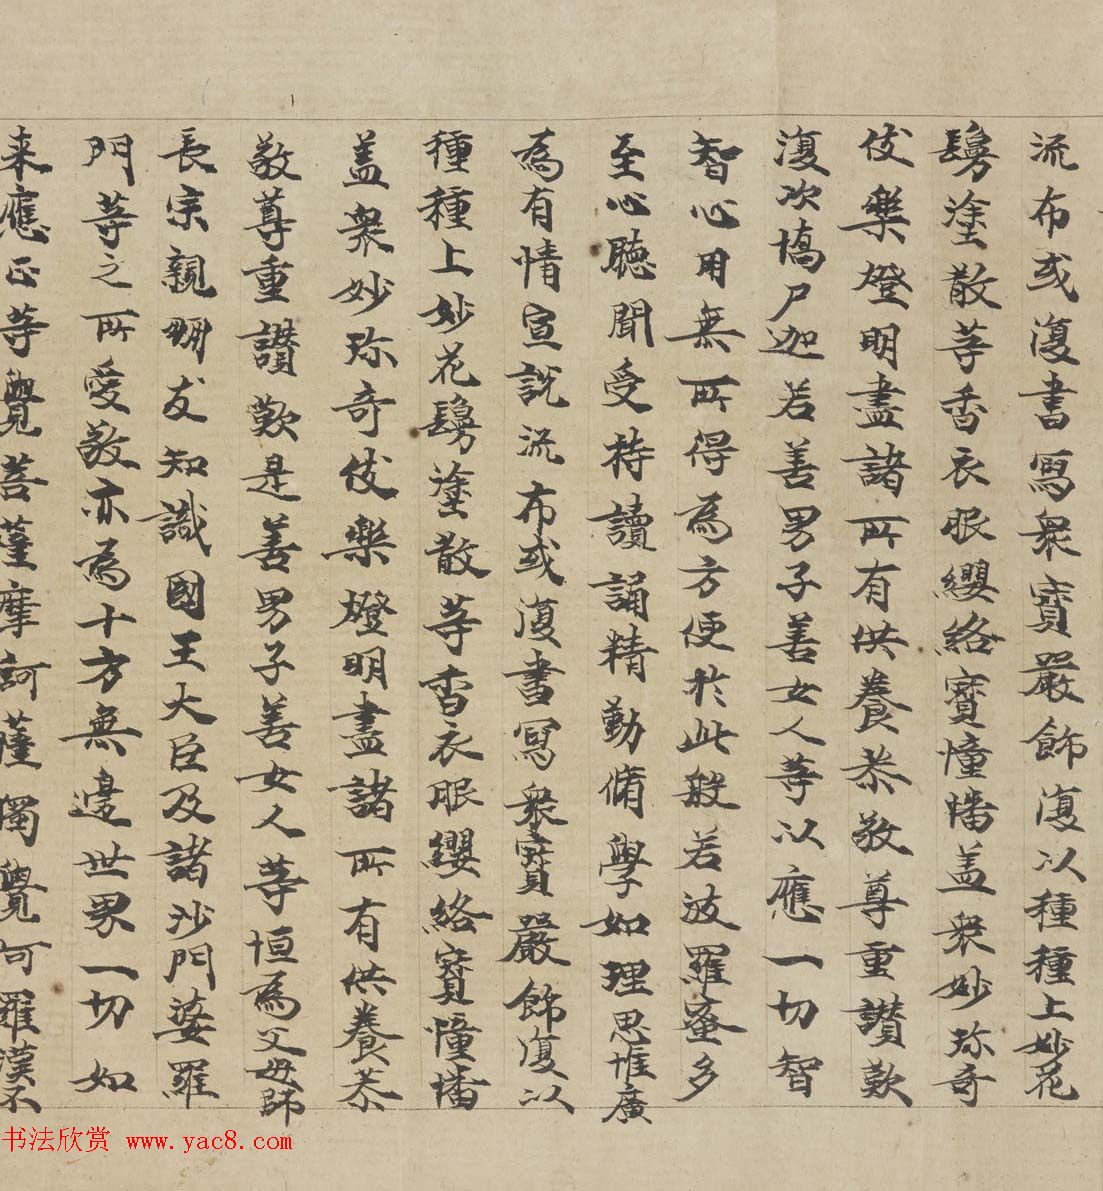 流布或復書寫衆寶嚴飾復以種種上妙花
鬘塗散等香衣服纓絡寶幢幡盖衆妙珎奇
伎樂燈明盡諸所有供養恭敬尊重讃歎
復次憍尸迦若善男子善女人等以應一切智
智心用無所得為方便於此般若波羅蜜多
至心聽聞受持讀誦精勤脩學如理思惟廣
為有情宣說流布或復書寫衆寶嚴飾復以
種種上妙花鬘塗散等香衣服纓絡寶幢幡
盖衆妙珎奇伎樂燈明盡諸所有供養恭
敬尊重讃歎是善男子善女人等恒為父母師
長宗親朋友知識國王大臣及諸沙門婆羅
門等之所愛敬亦為十方無邊世界一切如
来應正等覺菩薩摩訶薩獨覺阿羅漢不
书法欣赏 www.yac8.com